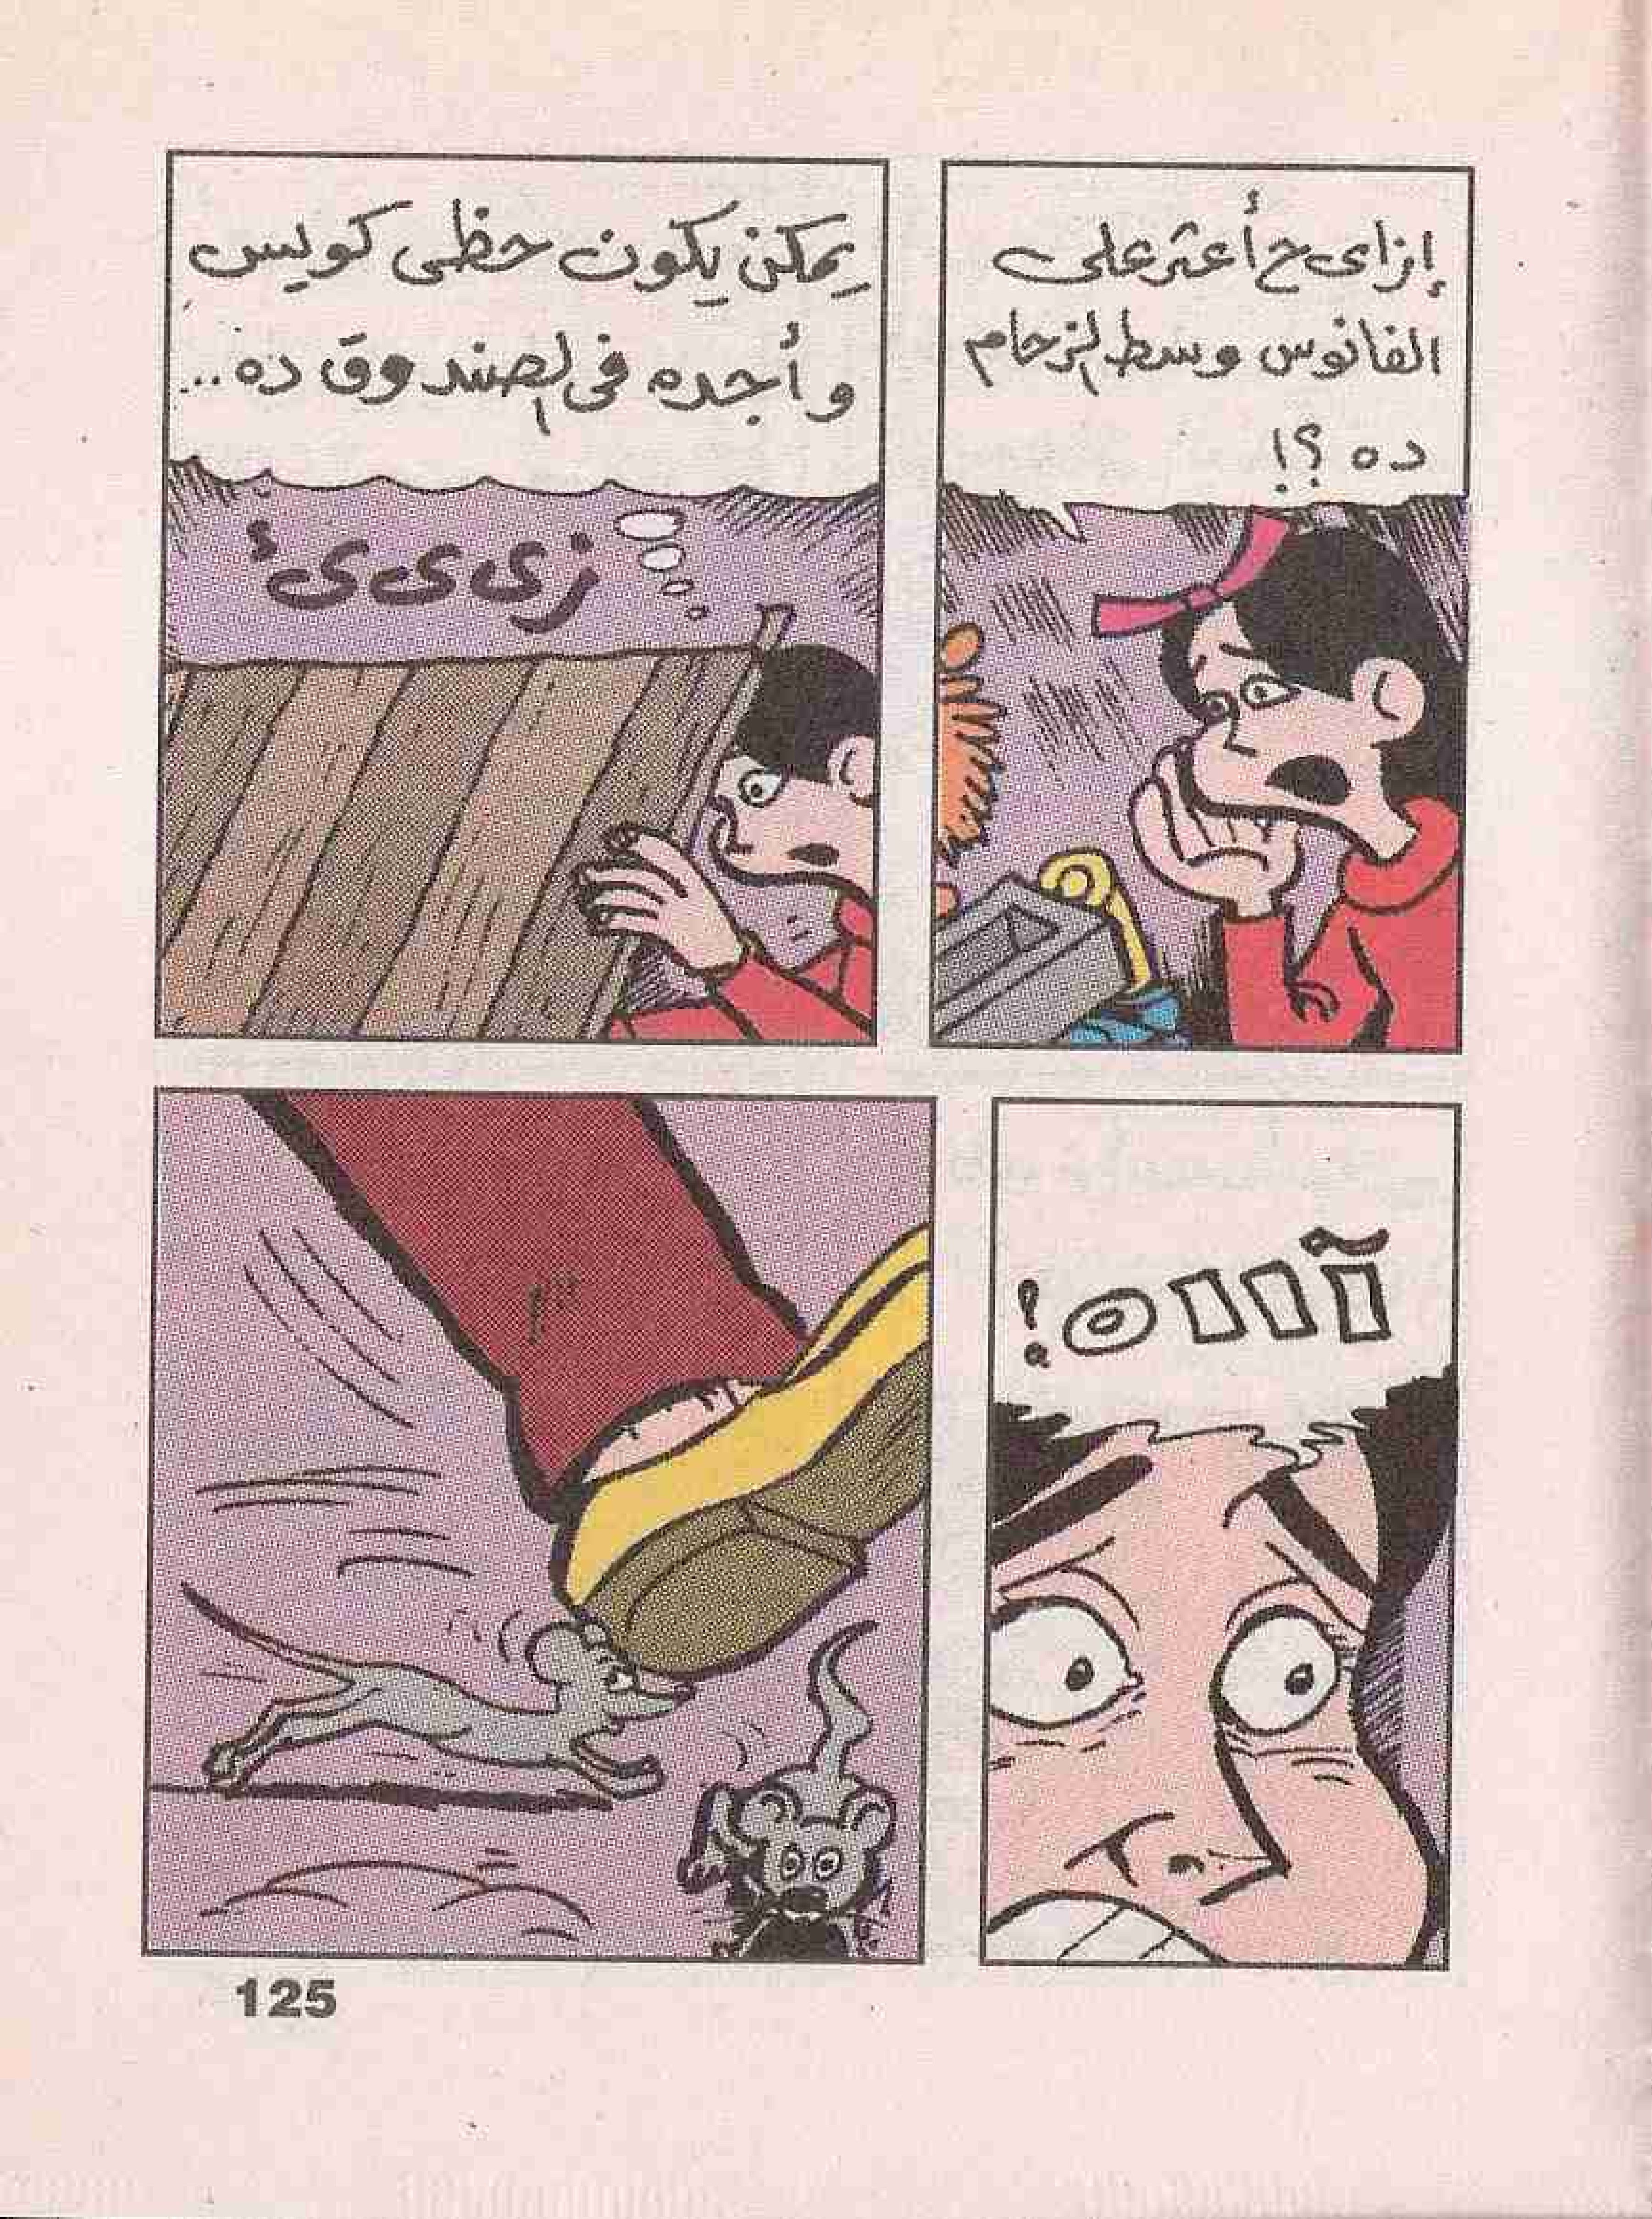 إزاى ح أعثر على
الفانوس وسط الزحام
ده ؟!
يمكن يكون حظى كويس
وأجده فى الصندوق ده...
زى ى ىء
آااه!
125